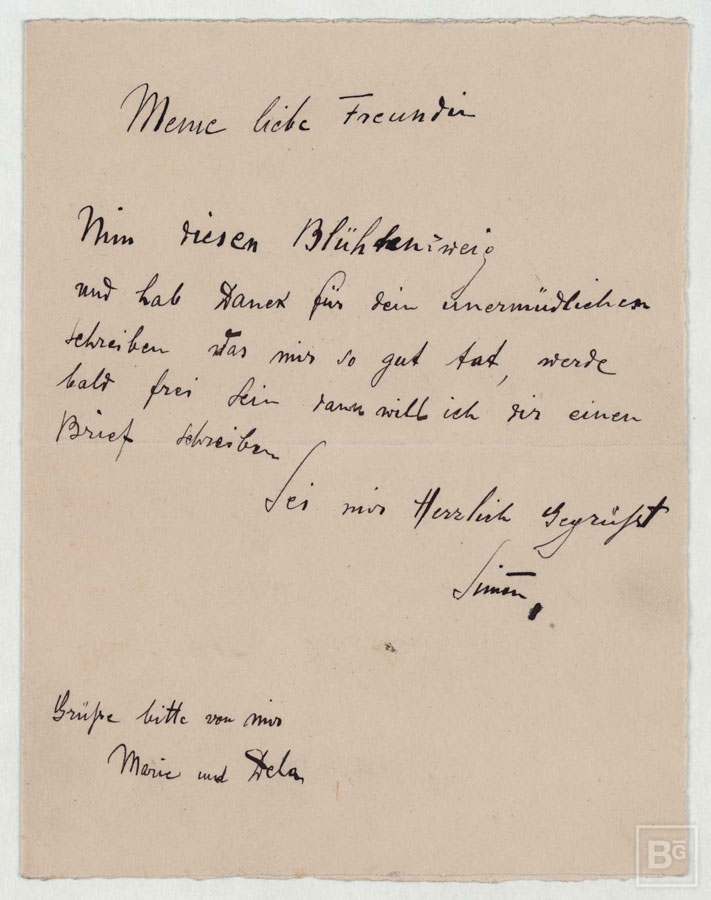 Meine liebe Freundin
Nim diesen Blühtenzweig
und hab Danck für dein unermüdliches
schreiben das mir so gut tat, werde
bald frei sein dann will ich dir einen
Brief schreiben
Sei mir Herzlich Gegrüßt
Simon
Grüße bitte von mir
Marie und Dela
BG